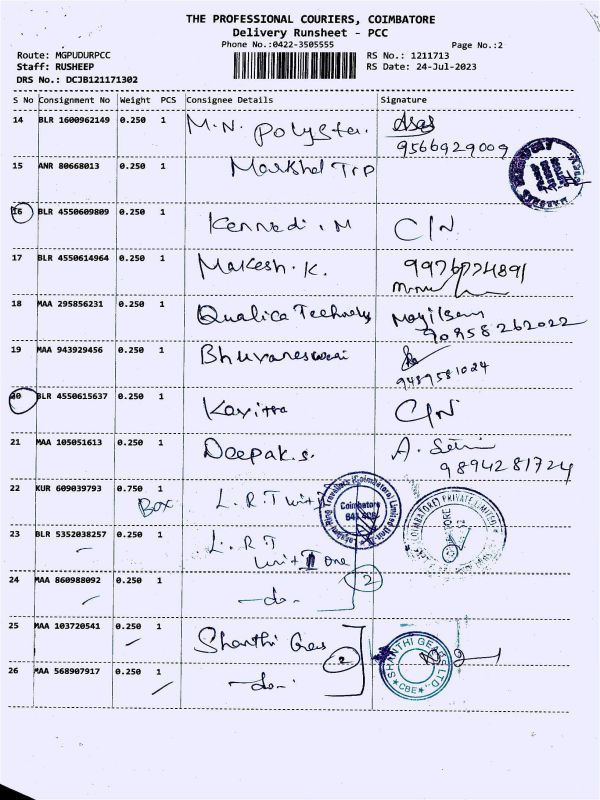 THE PROFESSIONAL COURIERS, COIMBATORE
Delivery Runsheet - PCC
Phone No.:0422-3505555
Page No.:2
Route: MGPUDURPCC
RS No.: 1211713
Staff: RUSHEEP
RS Date: 24-Jul-2023
DRS No.: DCJB121171302
S No Consignment No Weight PCS Consignee Details Signature
14 BLR 1600962149 0.250 1 M.N. Polyster.
9566929009
15 ANR 80668013 0.250 1 Markhal Trp
16 BLR 4550609809 0.250 1 Kennedi . M C/N
17 BLR 4550614964 0.250 1 Makesh . K. 9976724891
18 MAA 295856231 0.250 1 Qualica Technology
90958262022
19 MAA 943929456 0.250 1 Bhuvaneswari
9489581024
20 BLR 4550615637 0.250 1 Kavitha C/N
21 MAA 105051613 0.250 1 Deepak.s.
9894281724
22 KUR 609039793 0.750 1 L.R.T Unit
Box
Coimbatore
23 BLR 5352038257 0.250 1 L.R.T
Unit one
24 MAA 860988092 0.250 1 -do- 2
25 MAA 103720541 0.250 1 Shanthi Gears
2
SHANTHI GEARS LTD.
CBE
26 MAA 568907917 0.250 1 -do-